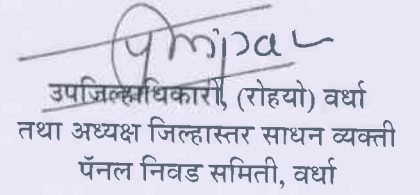 उपजिल्हाधिकारी, (रोहयो) वर्धा
तथा अध्यक्ष जिल्हास्तर साधन व्यक्ती
पॅनल निवड समिती, वर्धा